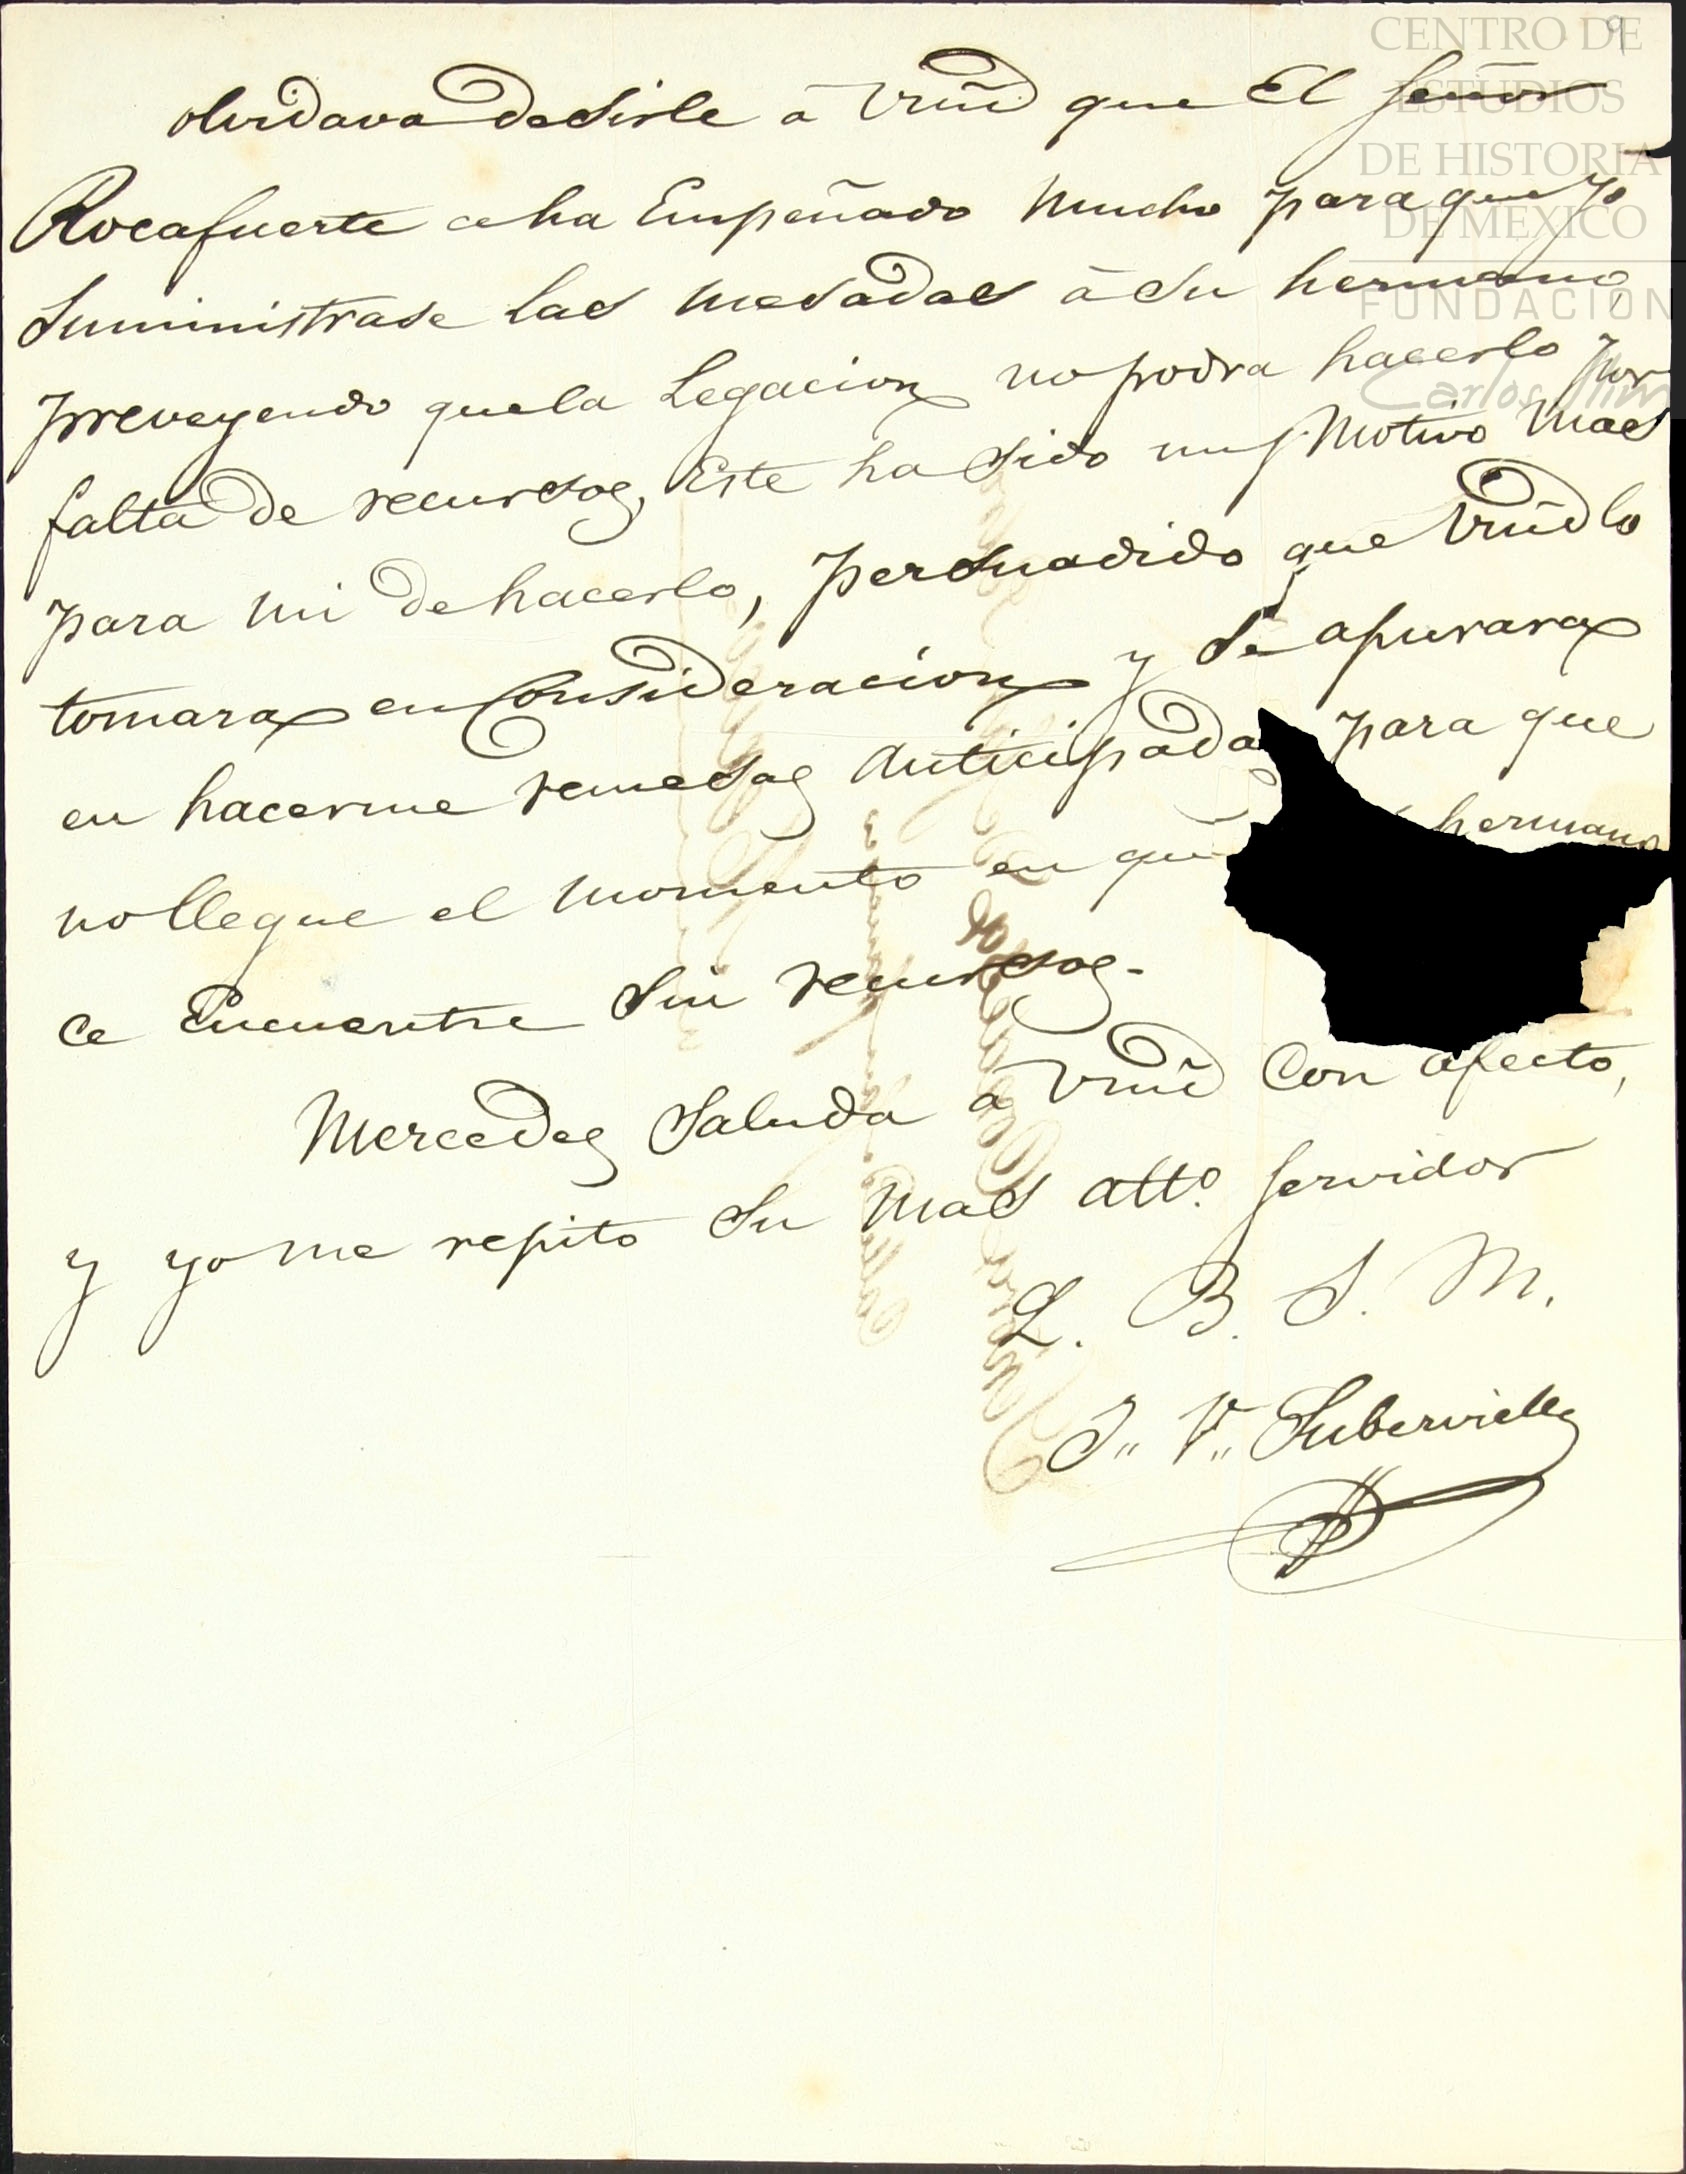 9
CENTRO DE
ESTUDIOS
DE HISTORIA
DE MEXICO
FUNDACIÓN
Carlos Slim
olvidava desirle â Vmd que El Señor
Rocafuerte ce ha Empeñado mucho para que yo
Suministrase las mesadas â su hermano,
preveyendo que la Legacion no podra hacerlo por
falta de recursos, Este ha sido un motivo mas
para mi de hacerlo, persuadido que Vmd lo
tomara en Consideracion y se apurara
en hacerme remesas anticipadas para que
no llegue el momento en que hermano
ce Encuentre sin recursos.
Mercedes saluda a Vmd Con afecto,
y yo me repito su mas atto. servidor
Q. B. S. M.
J,, V,, Subervielle